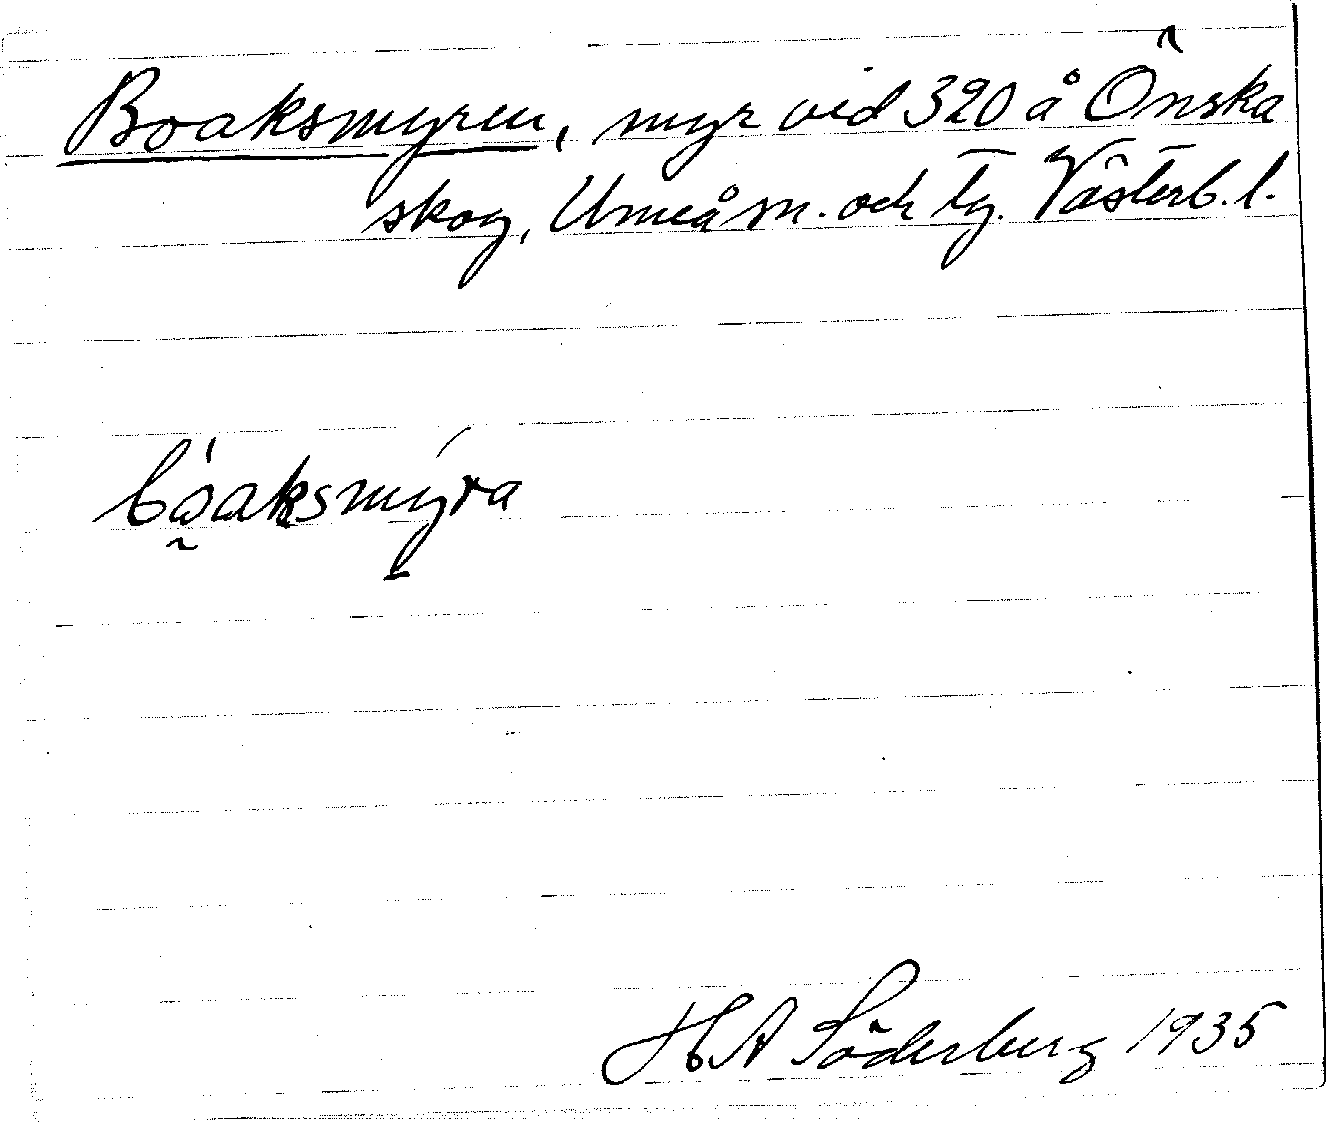 Boaksmyren, myr vid 320 å Önska
skog, Umeå sn. och tg. Västerb. l.
bòaksmýra
HA Söderberg 1935